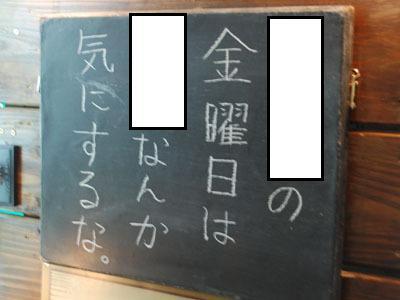 の
金曜日は
なんか
気にするな。